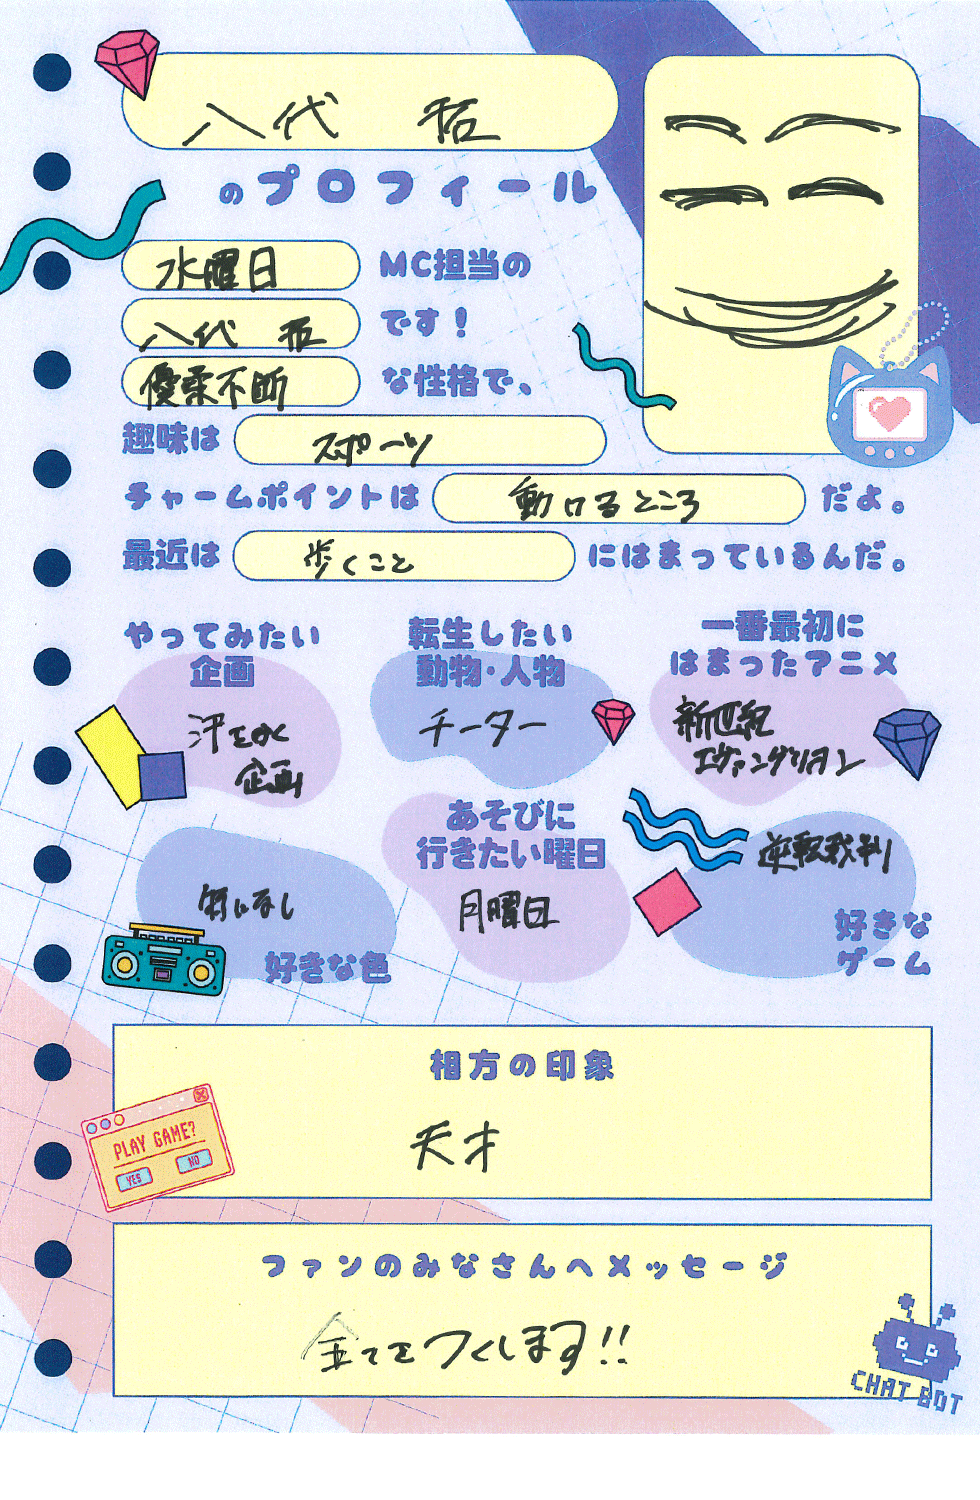 八代 拓
のプロフィール
水曜日 MC担当の
八代 拓 です！
優柔不断 な性格で、
趣味は スポーツ
チャームポイントは 動けるところ だよ。
最近は 歩くこと にはまっているんだ。
やってみたい
企画
汗をかく
企画
転生したい
動物・人物
チーター
一番最初に
はまったアニメ
新世紀
エヴァンゲリオン
特になし
好きな色
あそびに
行きたい曜日
月曜日
逆転裁判
好きな
ゲーム
相方の印象
天才
PLAY GAME?
YES NO
ファンのみなさんへメッセージ
全てをつくします!!
CHAT BOT